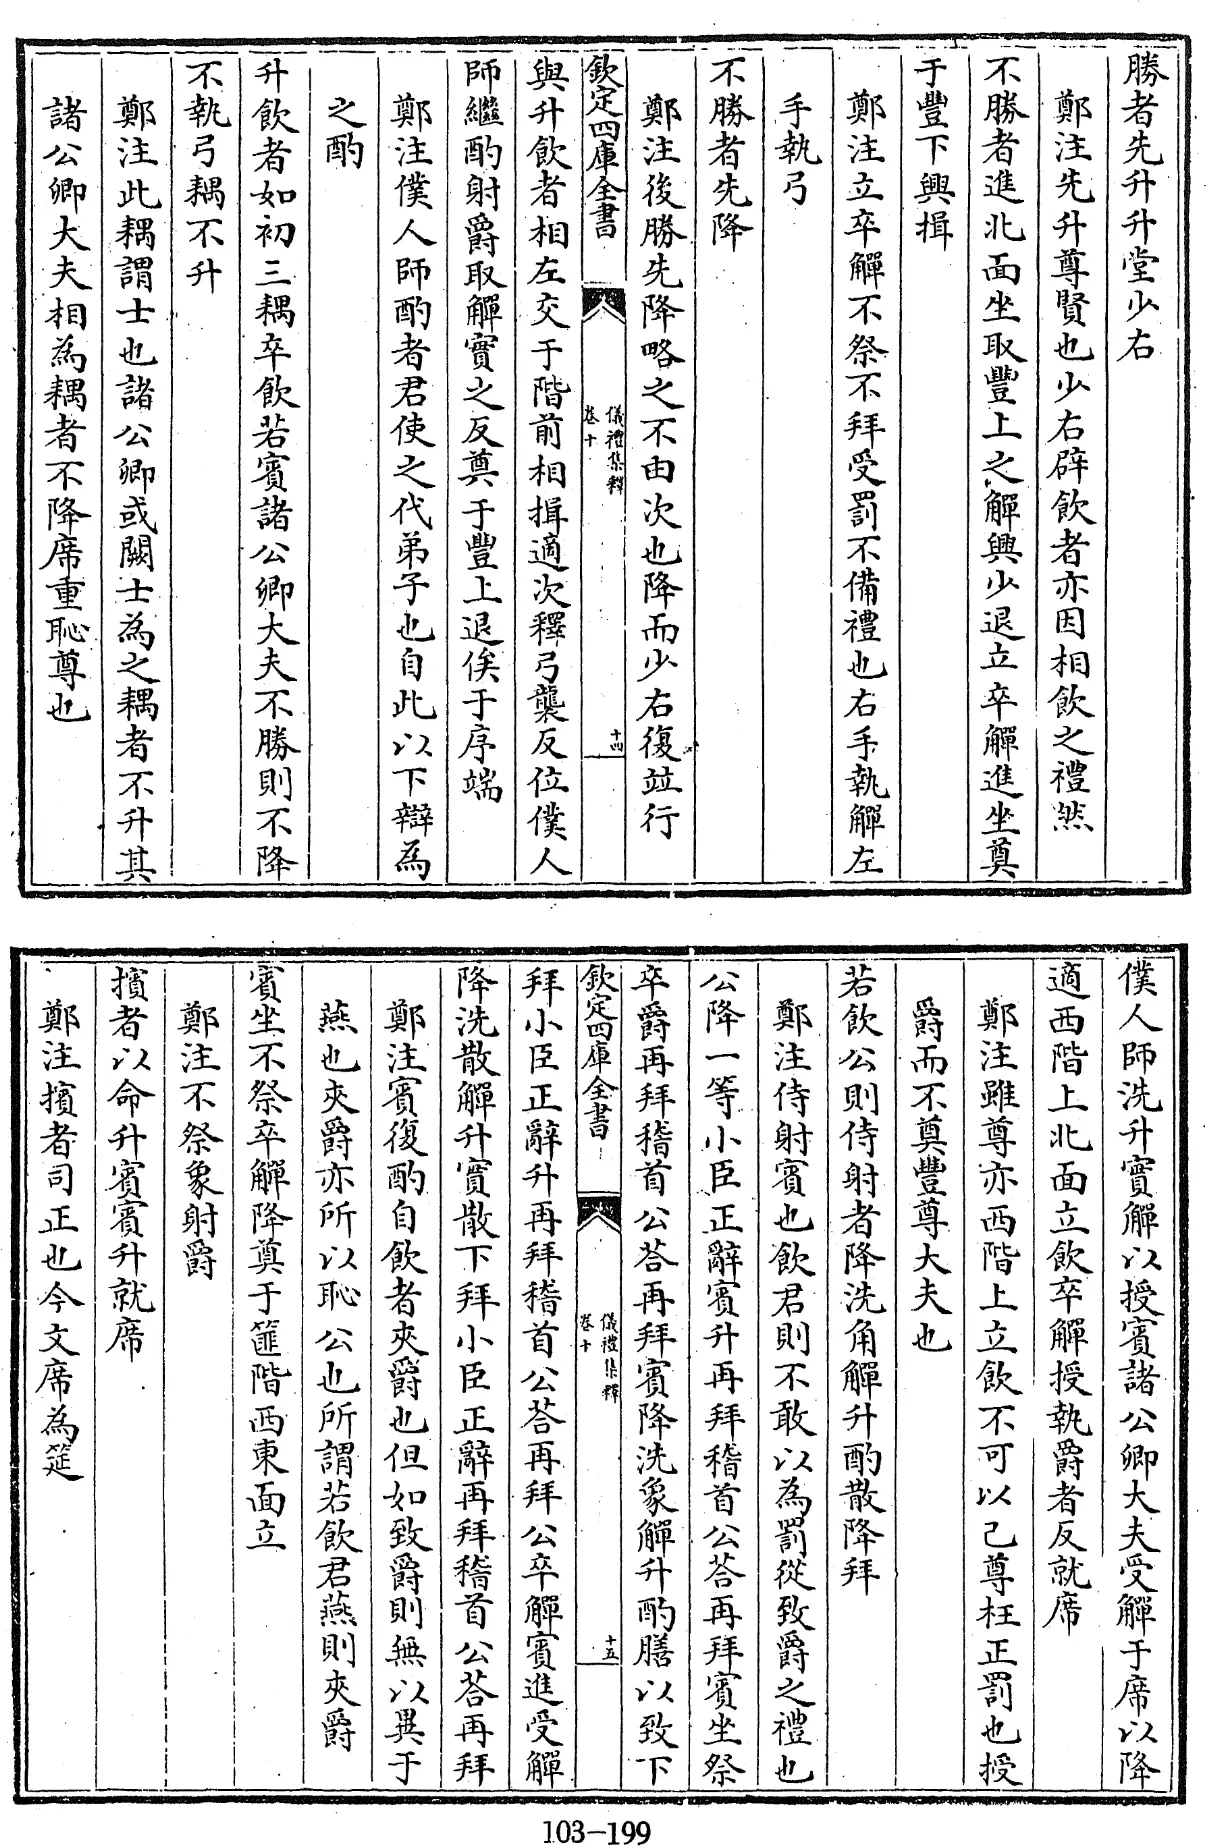 勝者先升升堂少右
鄭注先升尊賢也少右辟飲者亦因相飲之禮然
不勝者進北面坐取豐上之觶興少退立卒觶進坐奠
于豐下興揖
鄭注立卒觶不祭不拜受罰不備禮也右手執觶左
手執弓
不勝者先降
鄭注後勝先降略之不由次也降而少右復並行
欽定四庫全書
儀禮集釋
卷十
十四
與升飲者相左交于階前相揖適次釋弓襲反位僕人
師繼酌射爵取觶實之反奠于豐上退俟于序端
鄭注僕人師酌者君使之代弟子也自此以下辯為
之酌
升飲者如初三耦卒飲若賓諸公卿大夫不勝則不降
不執弓耦不升
鄭注此耦謂士也諸公卿或闕士為之耦者不升其
諸公卿大夫相為耦者不降席重恥尊也
僕人師洗升實觶以授賓諸公卿大夫受觶于席以降
適西階上北面立飲卒觶授執爵者反就席
鄭注雖尊亦西階上立飲不可以己尊枉正罰也授
爵而不奠豐尊大夫也
若飲公則侍射者降洗角觶升酌散降拜
鄭注侍射賓也飲君則不敢以為罰從致爵之禮也
公降一等小臣正辭賓升再拜稽首公荅再拜賓坐祭
卒爵再拜稽首公荅再拜賓降洗象觶升酌膳以致下
欽定四庫全書
儀禮集釋
卷十
十五
拜小臣正辭升再拜稽首公荅再拜公卒觶賓進受觶
降洗散觶升實散下拜小臣正辭再拜稽首公荅再拜
鄭注賓復酌自飲者夾爵也但如致爵則無以異于
燕也夾爵亦所以恥公也所謂若飲君燕則夾爵
賓坐不祭卒觶降奠于篚階西東面立
鄭注不祭象射爵
擯者以命升賓賓升就席
鄭注擯者司正也今文席為筵
103-199